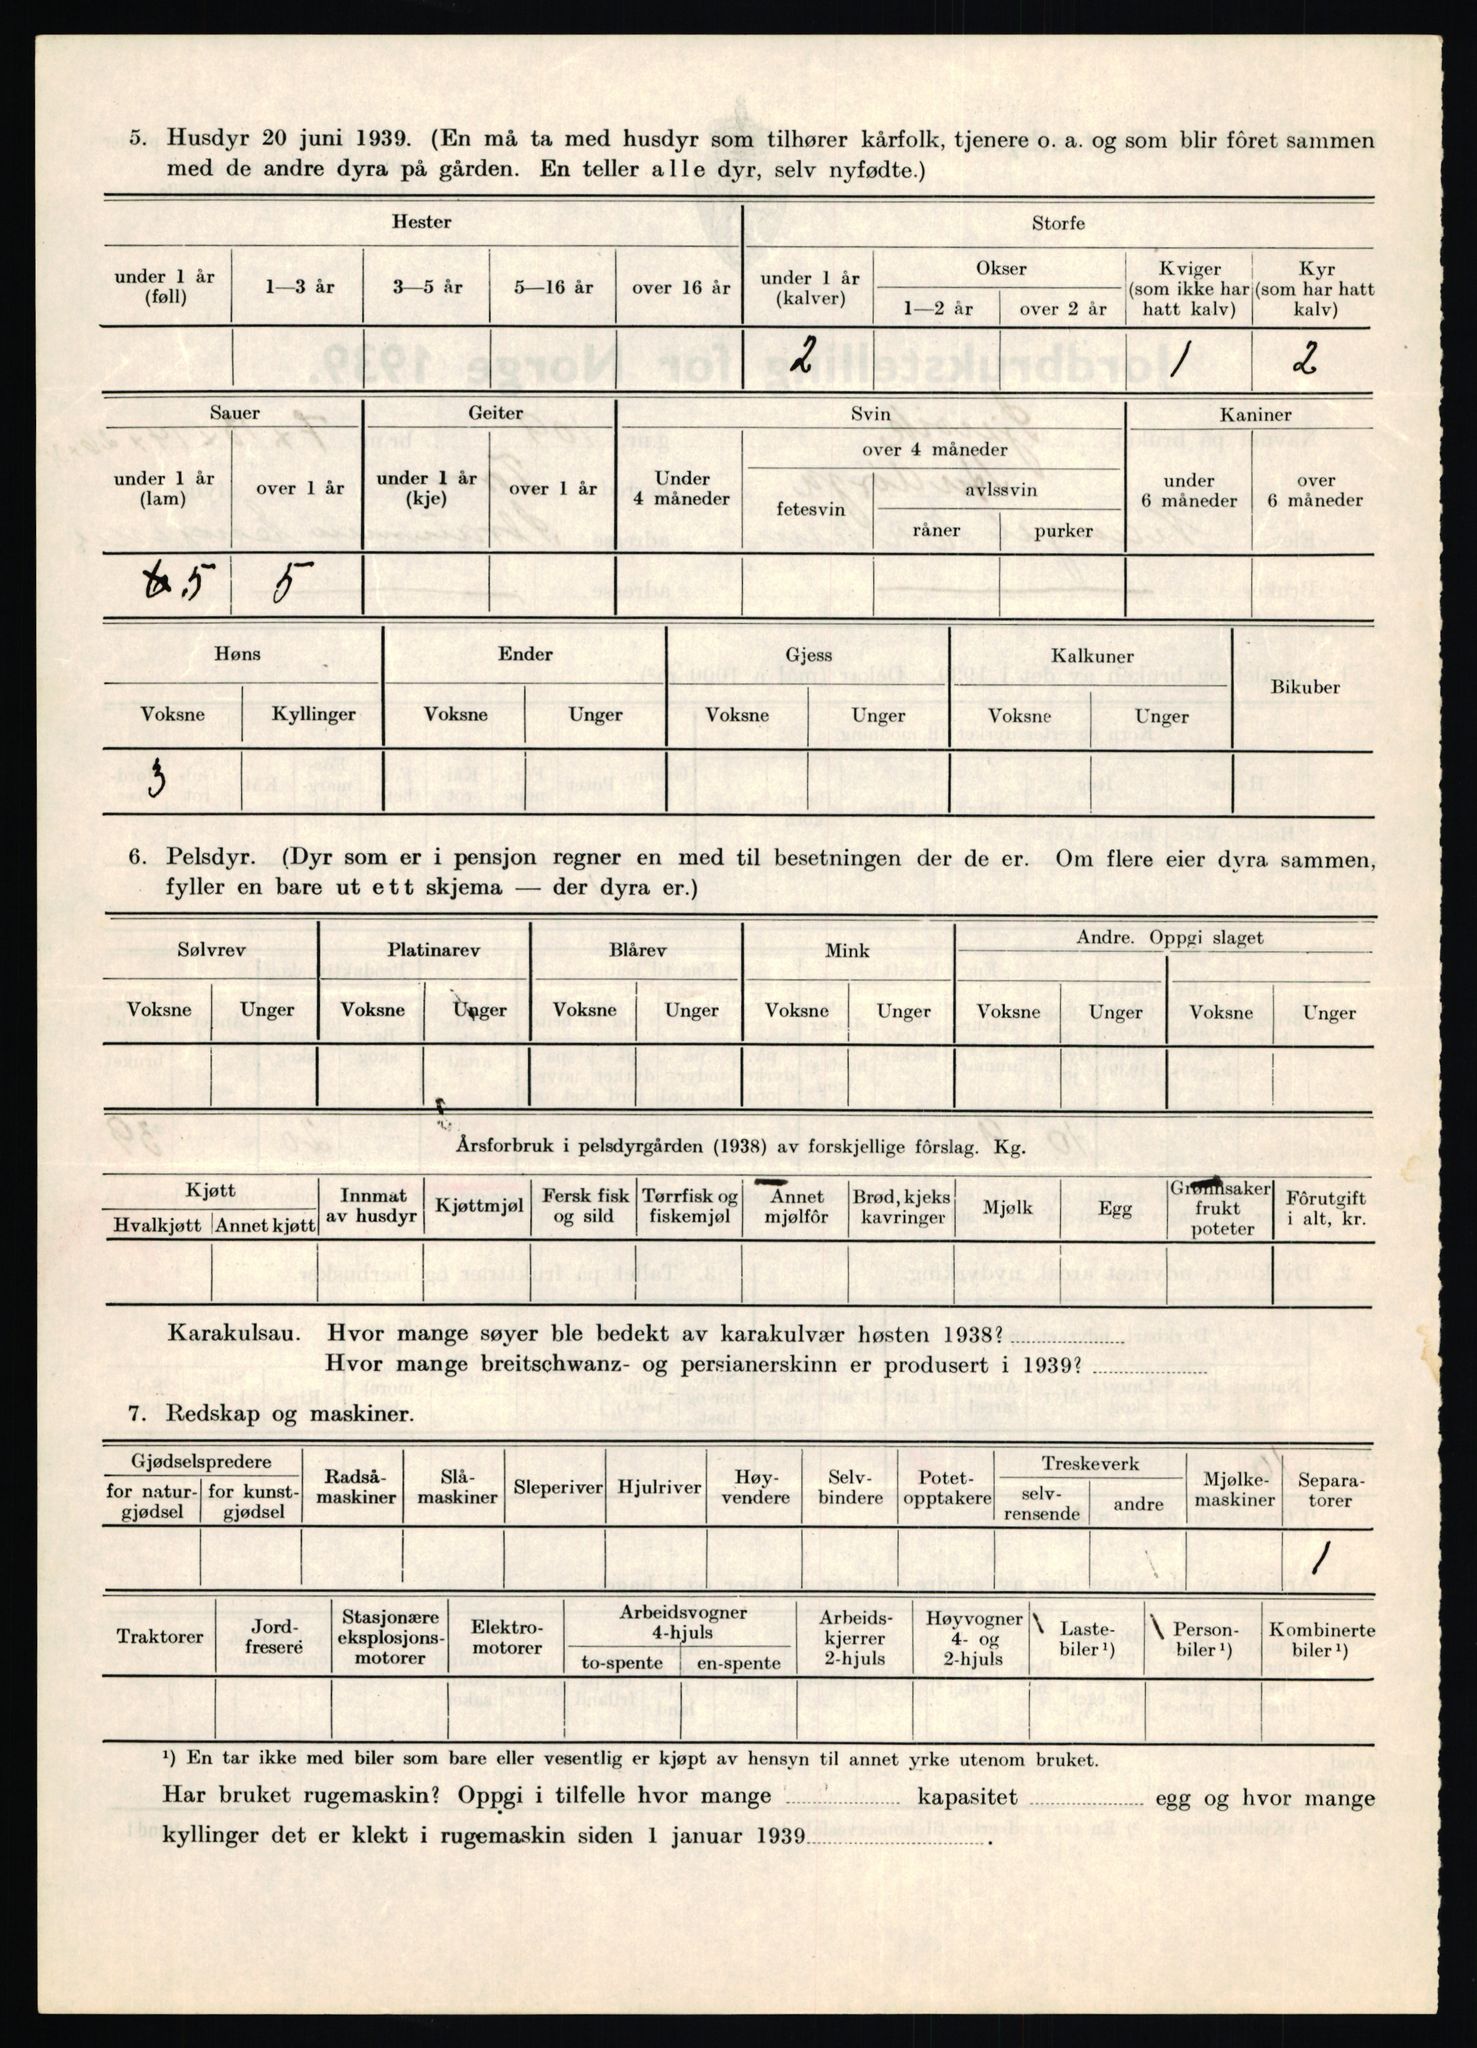 5. Husdyr 20 juni 1939. (En må ta med husdyr som tilhører kårfolk, tjenere o. a. og som blir fôret sammen
med de andre dyra på gården. En teller alle dyr, selv nyfødte.)
Hester Storfe
under 1 år (føll) 1—3 år 3—5 år 5—16 år over 16 år under 1 år (kalver) Okser Kviger (som ikke har hatt kalv) Kyr (som har hatt kalv)
1—2 år over 2 år
2 1 2
Sauer Geiter Svin Kaniner
under 1 år (lam) over 1 år under 1 år (kje) over 1 år Under 4 måneder over 4 måneder under 6 måneder over 6 måneder
fetesvin avlssvin
råner purker
5 5
Høns Ender Gjess Kalkuner Bikuber
Voksne Kyllinger Voksne Unger Voksne Unger Voksne Unger
3
6. Pelsdyr. (Dyr som er i pensjon regner en med til besetningen der de er. Om flere eier dyra sammen,
fyller en bare ut ett skjema — der dyra er.)
Sølvrev Platinarev Blårev Mink Andre. Oppgi slaget
Voksne Unger Voksne Unger Voksne Unger Voksne Unger Voksne Unger Voksne Unger
Årsforbruk i pelsdyrgården (1938) av forskjellige fôrslag. Kg.
Kjøtt Innmat av husdyr Kjøttmjøl Fersk fisk og sild Tørrfisk og fiskemjøl Annet mjølfôr Brød, kjeks kavringer Mjølk Egg Grønnsaker frukt poteter Fôrutgift i alt, kr.
Hvalkjøtt Annet kjøtt
Karakulsau. Hvor mange søyer ble bedekt av karakulvær høsten 1938?
Hvor mange breitschwanz- og persianerskinn er produsert i 1939?
7. Redskap og maskiner.
Gjødselspredere Radså-maskiner Slå-maskiner Sleperiver Hjulriver Høy-vendere Selv-bindere Potet-opptakere Treskeverk Mjølke-maskiner Separa-torer
for natur-gjødsel for kunst-gjødsel selv-rensende andre
1
Traktorer Jord-fresere Stasjonære eksplosjons-motorer Elektro-motorer Arbeidsvogner 4-hjuls Arbeids-kjerrer 2-hjuls Høyvogner 4- og 2-hjuls Laste-biler ¹) Person-biler ¹) Kombinerte biler ¹)
to-spente en-spente
¹) En tar ikke med biler som bare eller vesentlig er kjøpt av hensyn til annet yrke utenom bruket.
Har bruket rugemaskin? Oppgi i tilfelle hvor mange kapasitet egg og hvor mange
kyllinger det er klekt i rugemaskin siden 1 januar 1939 .